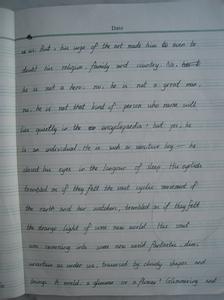 Date
us us. But, his urge of the art made him to even to
doubt his religion, family and country. No,
he is not a hero, no, he is not a great man,
no, he is not that kind of person who name will
lies quietly in the encyclopaedia! but yes, he
is an individual. He is such a sensitive boy —— he
closed his eyes in the langour of sleep. His eyelids
trembled as if they felt the vast cyclic movement of
the earth and her watchers, trembled as if they felt
the strange light of some new world. His soul
was swooning into some new world fantastic, dim,
uncertain as under sea, traversed by cloudy shapes and
beings. A world, a glimmer or a flower? Glimmering and